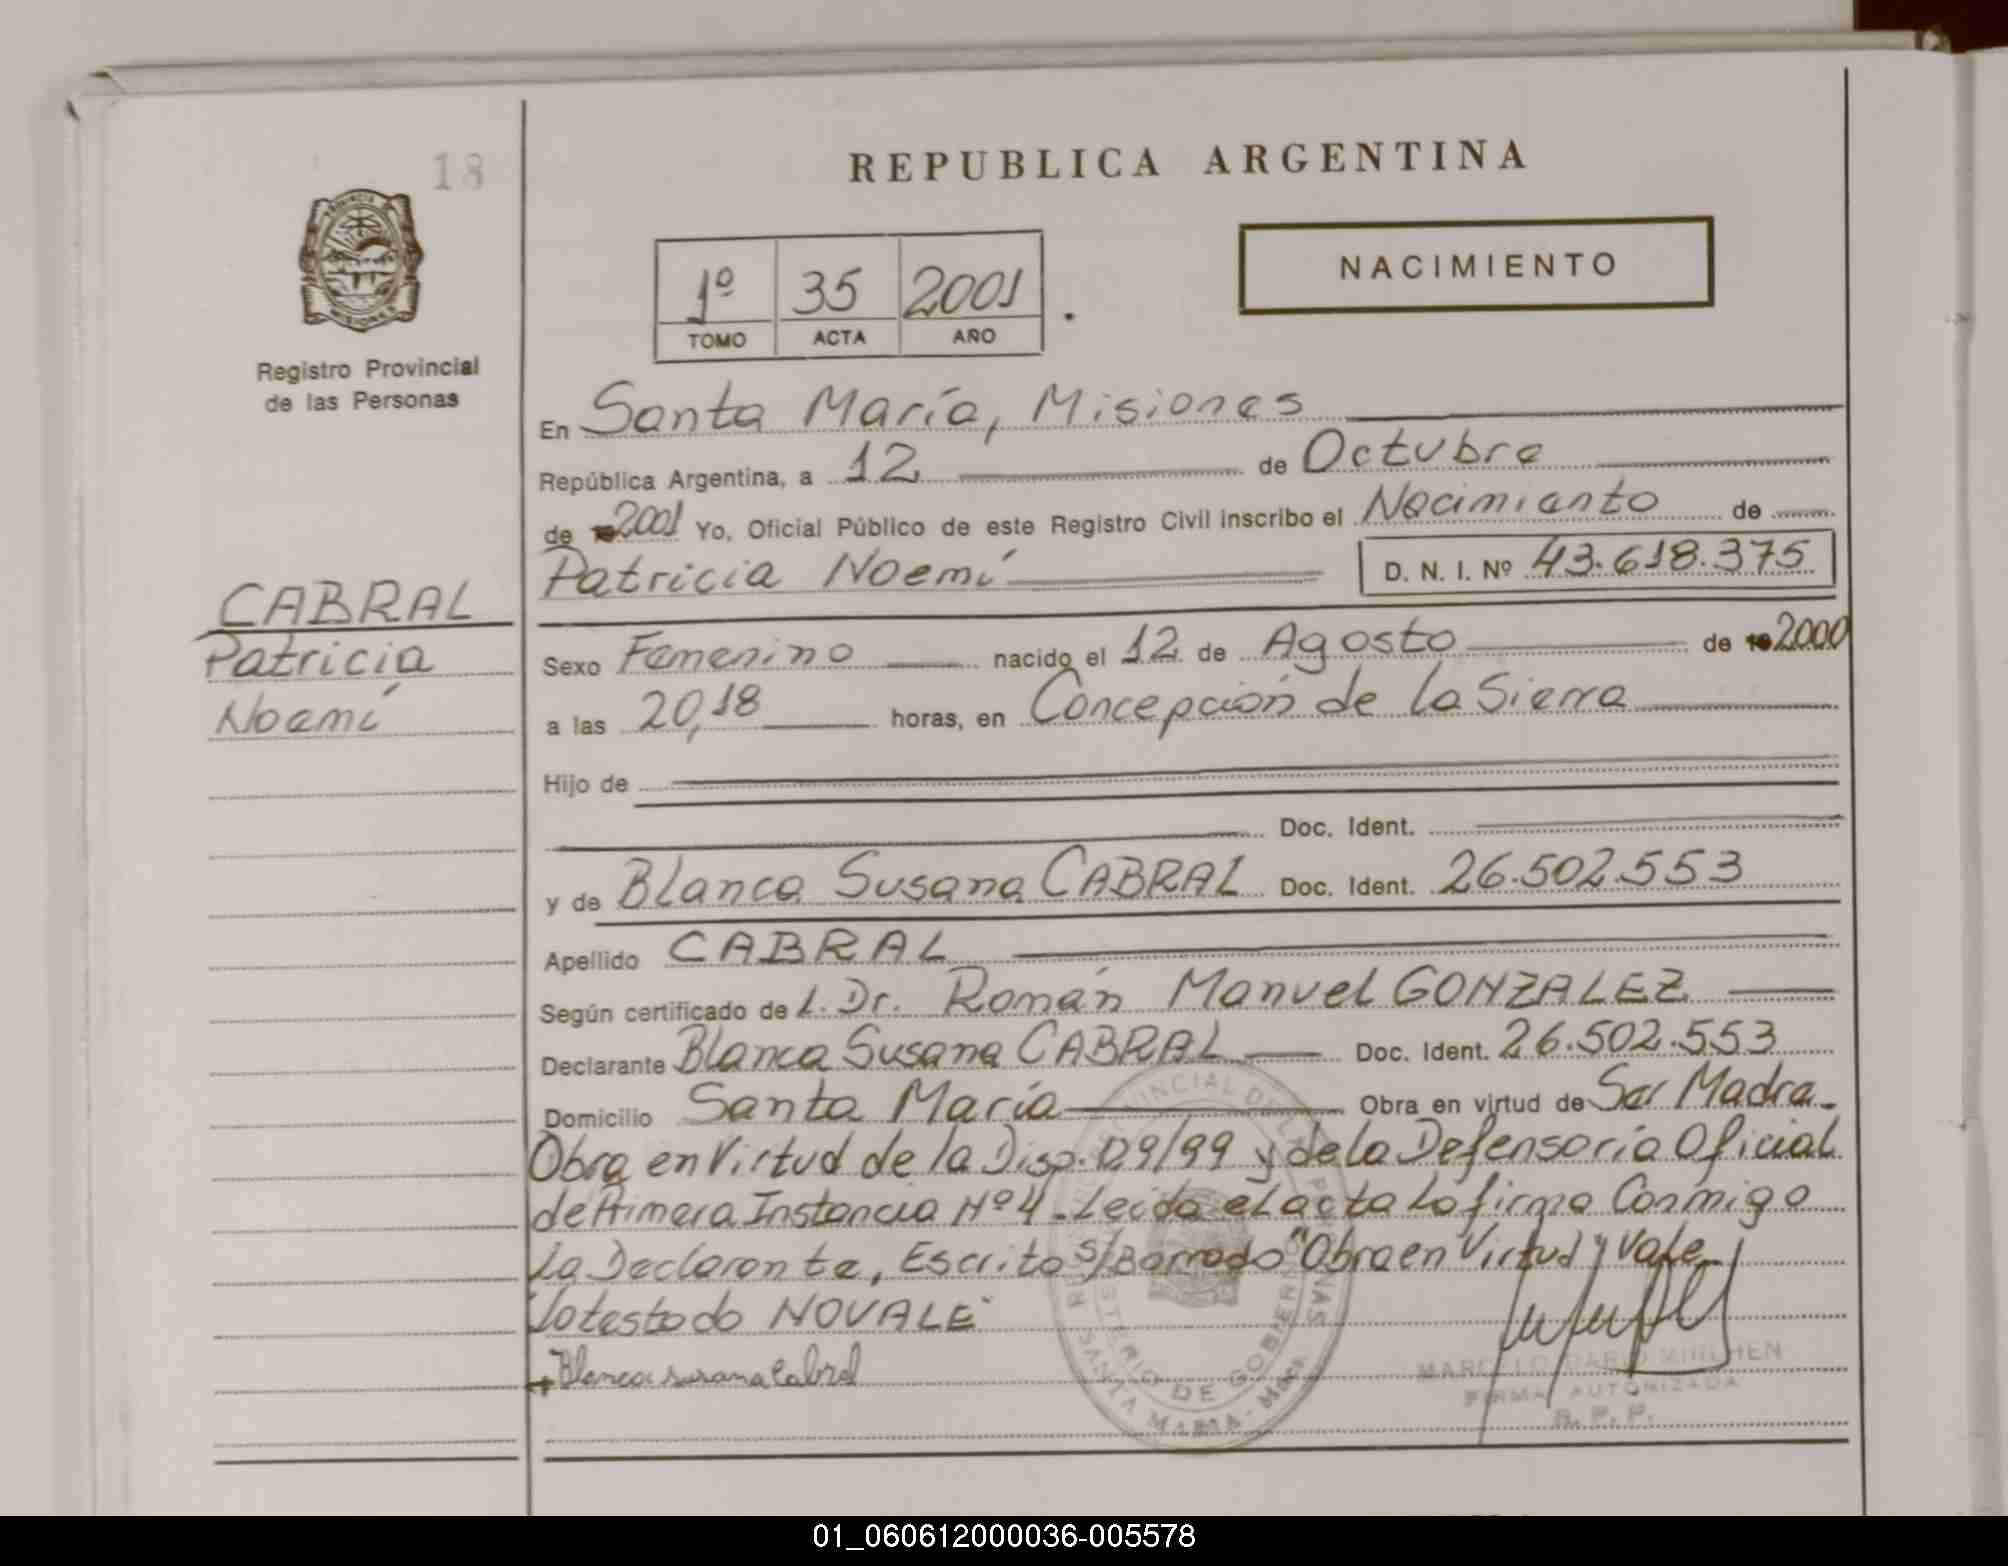 18
REPUBLICA ARGENTINA
NACIMIENTO
1º 35 2001
TOMO ACTA AÑO
Registro Provincial
de las Personas
En Santa María, Misiones
República Argentina, a 12 de Octubre
de 2001 Yo, Oficial Público de este Registro Civil inscribo el Nacimiento de
Patricia Noemí D. N. I. Nº 43.618.375
CABRAL
Patricia
Noemí
Sexo Femenino nacido el 12 de Agosto de 2000
a las 20,18 horas, en Concepción de la Sierra
Hijo de
Doc. Ident.
y de Blanca Susana CABRAL Doc. Ident. 26.502.553
Apellido CABRAL
Según certificado de L. Dr. Román Manuel GONZALEZ
Declarante Blanca Susana CABRAL Doc. Ident. 26.502.553
Domicilio Santa María Obra en virtud de Ser Madre-
Obra en Virtud de la Disp. 09/99 y de la Defensoría Oficial
de Primera Instancia Nº 4. Leída el acta La firma Conmigo
La Declarante, Escrito s/Borrado "Obra en Virtud y Vale
lo testado NO VALE"
Blanca susana Cabral
MARCELO DARIO
FIRMA AUTORIZADA
R. P. P.
SANTA MARIA - Mnes.
01_060612000036-005578